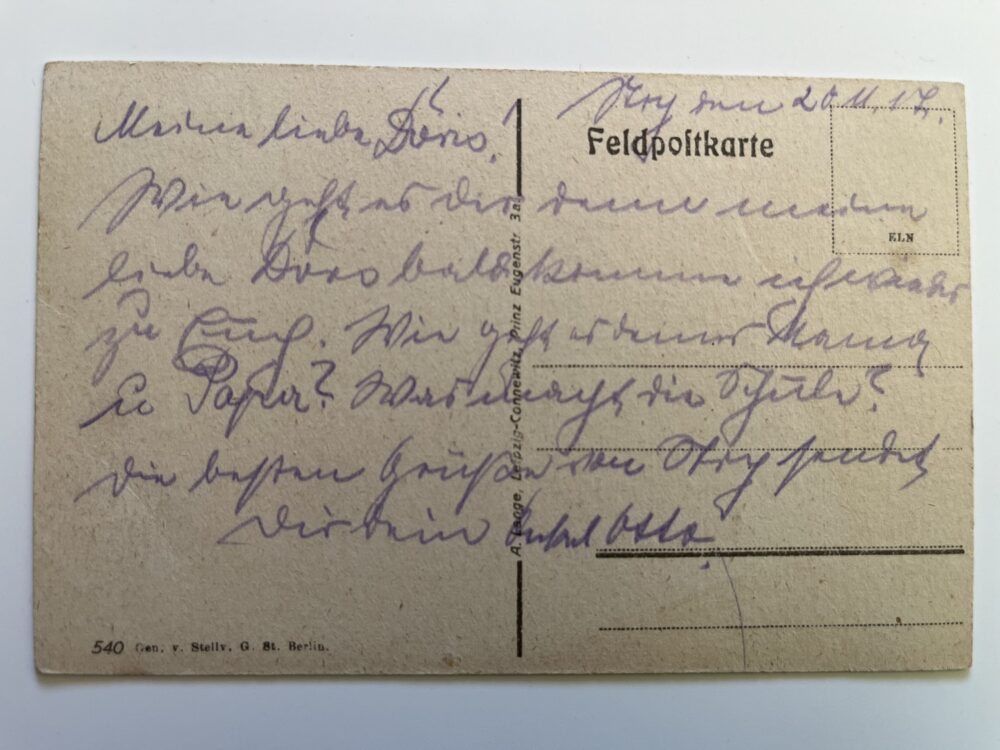 Stry den 20.11.17.
Feldpostkarte
Meine liebe Döris!
Wie geht es dir denn meine
liebe Döris bald komme ich wieder
zu Euch. Wie geht es deiner Mama
u Papa? Was macht die Schule?
Die besten Grüße von Stry sendet
Dir dein Onkel Otto.
ELN
A. Lange, Leipzig-Connewitz, Prinz Eugenstr. 3a.
540 Gen. v. Stellv. G. St. Berlin.